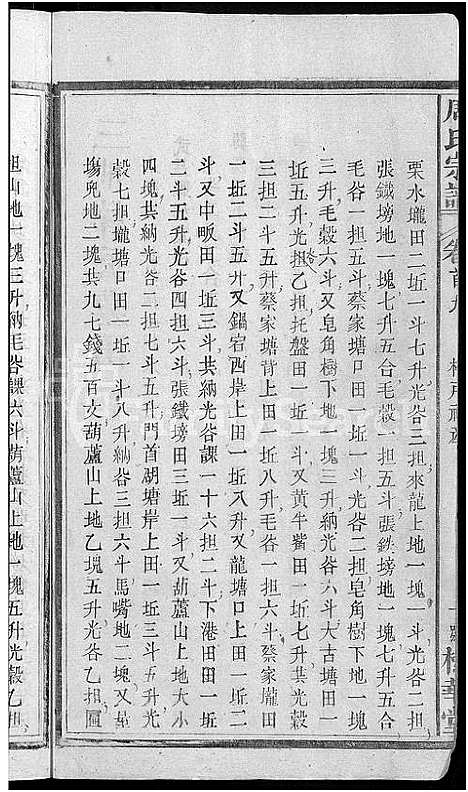 周氏宗譜 卷首九
栗水壠田二坵一斗七升光谷三担來龍上地一塊一斗光谷二担
張鐵塝地一塊七升五合毛穀一担五斗張鉄塝地一塊七升五合
毛谷一担五斗蔡家塘口田一坵一斗光谷二担皂角樹下地一塊
三升毛穀六斗又皂角樹下地一塊三升納光谷六斗大古塘田一
坵五升光担谷乙托盤田一坵一斗又黄牛觜田一坵七升光谷
三担二斗五升蔡家塘背上田一坵八升毛谷一担六斗蔡家壠田
一坵二斗五升又鍋宕西岸上田一坵八升又龍塘口田一坵一
斗又中畈田一坵三斗共納光谷課一十六担四斗下港田田一坵
二斗五升光谷四担六斗張鐵塝田三坵一斗又葫蘆山上大地
四塊共納光谷二担七斗五升門首湖塘岸上田一坵三斗五升光
穀七担壠塘口田一坵一斗八升納谷三担六斗馬嘴地二塊又
塲兜地二塊共九七錢五百文葫蘆山上地乙塊五升光谷乙担
担山地一塊三升納毛谷課六斗葫蘆山上地一塊五升光穀乙担